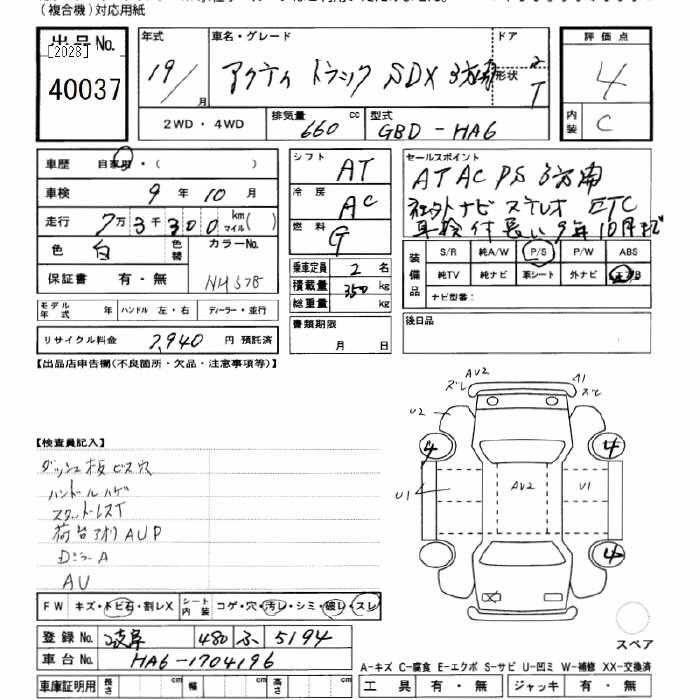 (複合機)対応用紙
出品No.
[2028]
40037
年式
19/
月
車名・グレード
アクティ トラック SDX 3方開
ドア
2
形状
T
評価点
4
内装
C
2WD・4WD
排気量
660
cc
型式
GBD-HA6
車歴
自家用・( )
車検
9 年 10 月
走行
7万 3千 300 km マイル( )
色
白
色替
カラーNo.
NH578
保証書
有・無
シフト
AT
冷房
AC
燃料
G
乗車定員 2 名
積載量 350 kg
総重量 kg
セールスポイント
AT AC PS 3方開
社外ナビ ステレオ ETC
車検付長い 9年10月まで
装備品
S/R 純A/W P/S P/W ABS
純TV 純ナビ 革シート 外ナビ エアB
ナビ型番:
モデル年式 年 ハンドル 左・右 ディーラー・並行
リサイクル料金 7,940 円 預託済
書類期限
月 日
後日品
【出品店申告欄(不良箇所・欠品・注意事項等)】
AV2
ズレ
A1
ズレ
U2
4
4
U1
AV2
U1
4
【検査員記入】
ダッシュ板ビス穴
ハンドルハゲ
スタッドレスT
荷台アオリAUP
Dミラー A
AU
FW キズ・トビ石・割レX シート内装 コゲ・穴・汚レ・シミ・破レ・スレ
登録No. 岐阜 480 ふ 5194
車台No. HA6-1704196
スペア
A-キズ C-腐食 E-エクボ S-サビ U-凹ミ W-補修 XX-交換済
車庫証明用 長さ cm 幅 cm 高さ cm
工具 有・無 ジャッキ 有・無